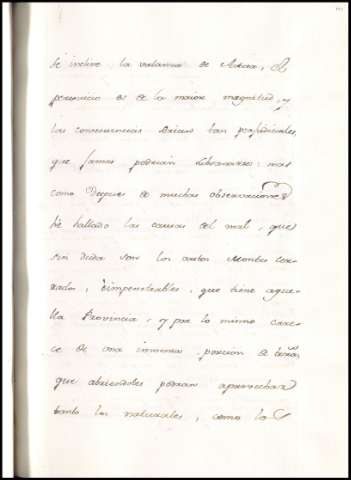 se inclive la valanza de Astrea, el
perjuicio es de la maior magnitud, y
las consecuencias serian tan perjudiciales,
que jamas podrian librararse: mas
como despues de muchas observaciones
hé hallado las causas del mal, que
sin duda son los altos Montes cer-
rados, é impenetrables, que tiene aque-
lla Provincia, y por lo mismo care-
ce de una inmensa porcion de terrños
que abriendoles podran aprovechar
tanto los naturales, como los